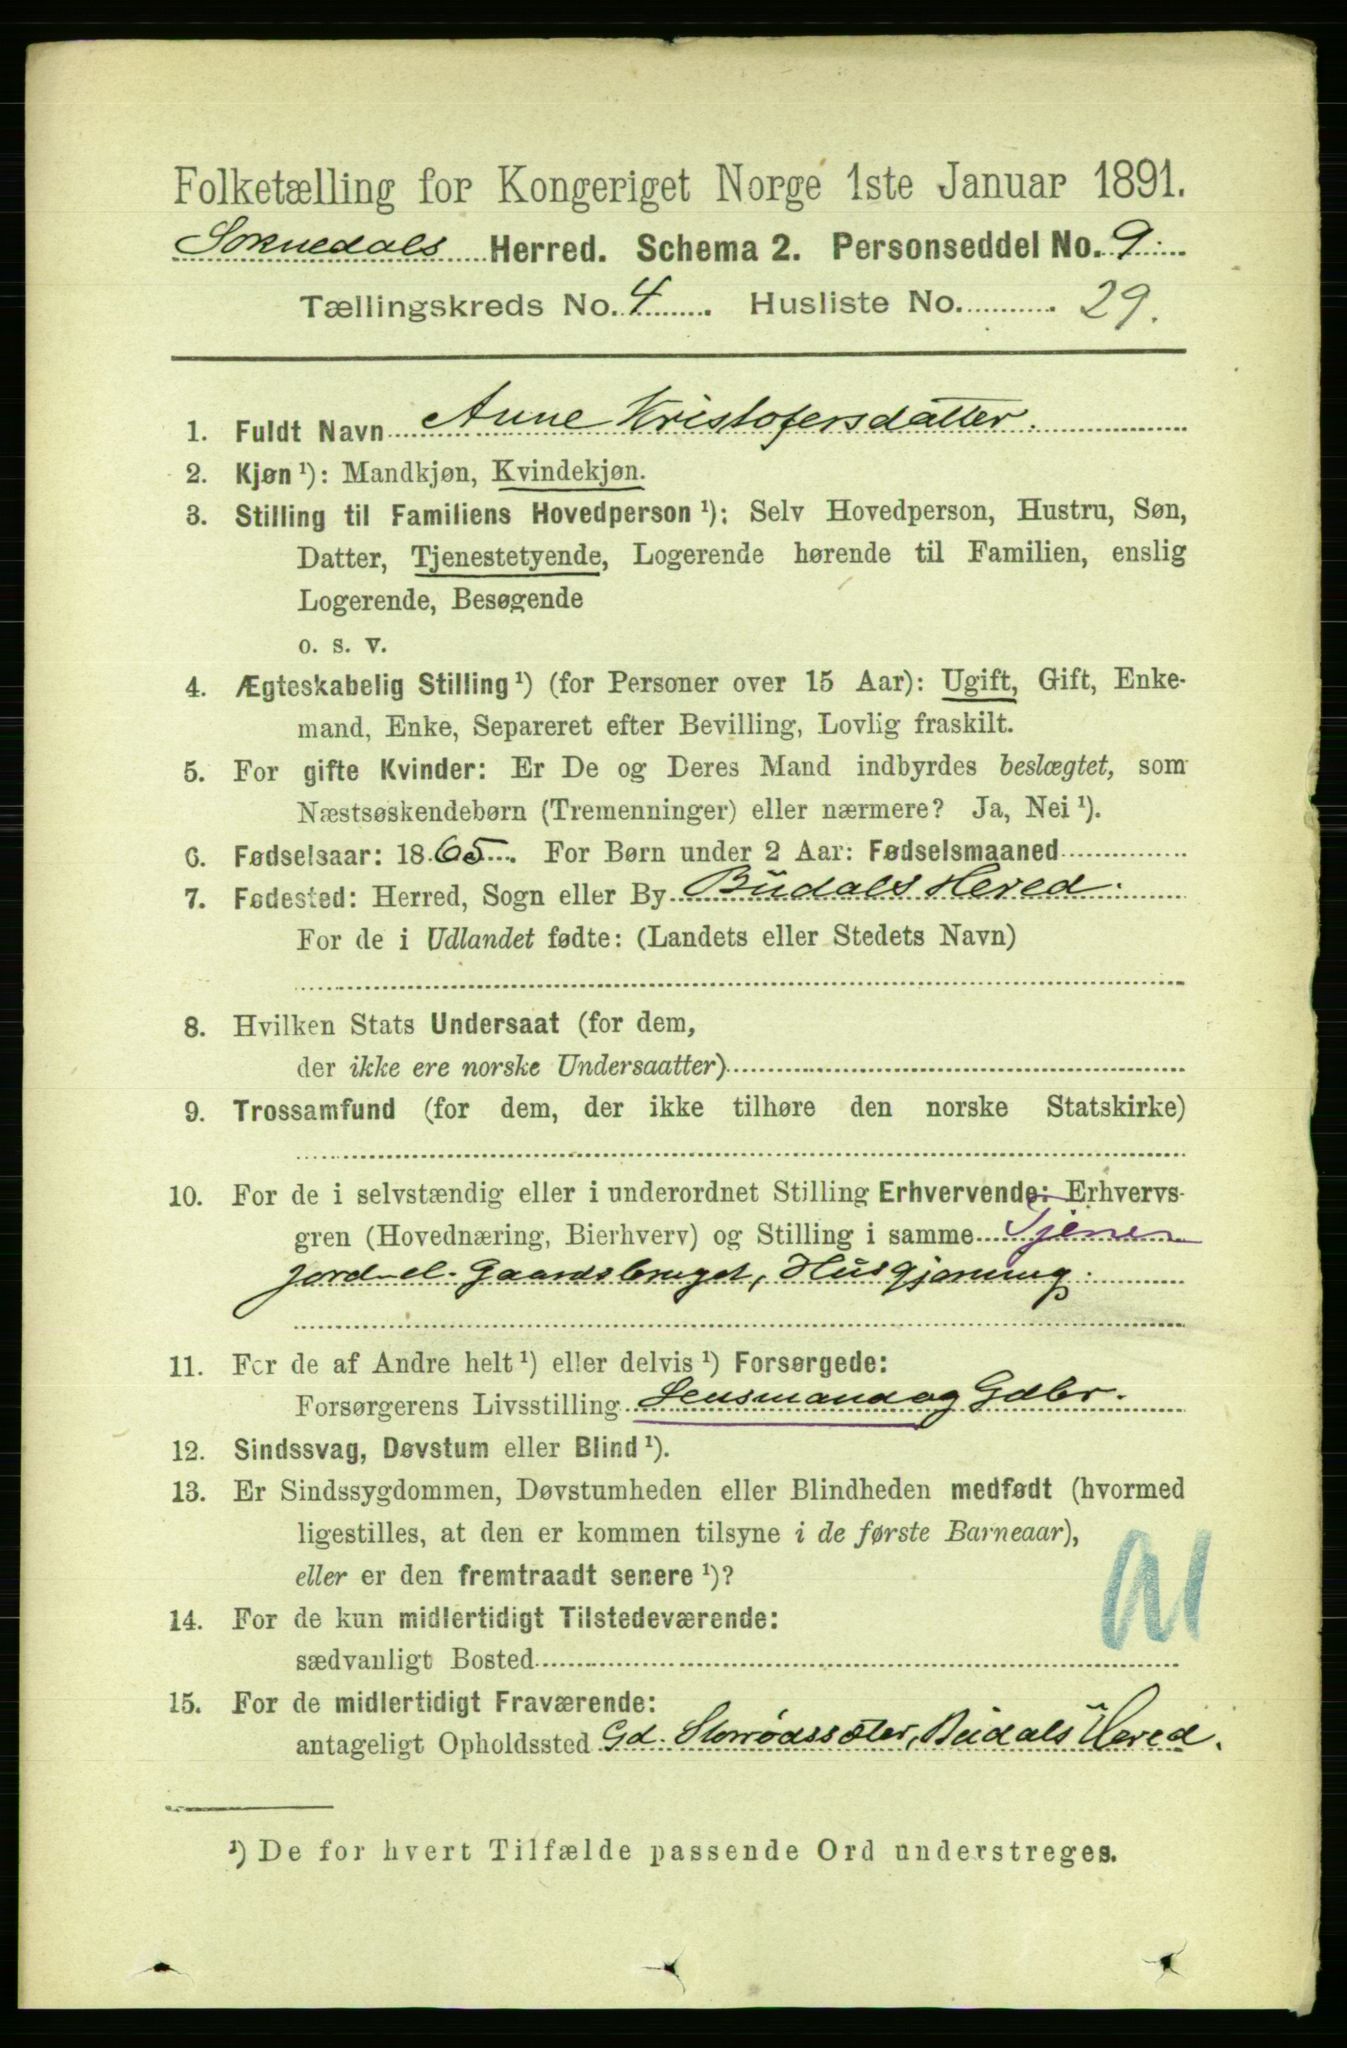 Folketælling for Kongeriget Norge 1ste Januar 1891.
Soknedals Herred. Schema 2. Personseddel No. 9.
Tællingskreds No. 4. Husliste No. 29.
1. Fuldt Navn Anne Kristofersdatter.
2. Kjøn ¹): Mandkjøn, Kvindekjøn.
3. Stilling til Familiens Hovedperson ¹): Selv Hovedperson, Hustru, Søn,
Datter, Tjenestetyende, Logerende hørende til Familien, enslig
Logerende, Besøgende
o. s. v.
4. Ægteskabelig Stilling ¹) (for Personer over 15 Aar): Ugift, Gift, Enke-
mand, Enke, Separeret efter Bevilling, Lovlig fraskilt.
5. For gifte Kvinder: Er De og Deres Mand indbyrdes beslægtet, som
Næstsøskendebørn (Tremenninger) eller nærmere? Ja, Nei ¹).
6. Fødselsaar: 1865. For Børn under 2 Aar: Fødselsmaaned
7. Fødested: Herred, Sogn eller By Budals Hered.
For de i Udlandet fødte: (Landets eller Stedets Navn)
8. Hvilken Stats Undersaat (for dem,
der ikke ere norske Undersaatter)
9. Trossamfund (for dem, der ikke tilhøre den norske Statskirke)
10. For de i selvstændig eller i underordnet Stilling Erhvervende: Erhvervs-
gren (Hovednæring, Bierhverv) og Stilling i samme Tjener
jord-el. Gaardsbruget, Husgjerning.
11. For de af Andre helt ¹) eller delvis ¹) Forsørgede:
Forsørgerens Livsstilling Lensmand og Gdbr.
12. Sindssvag, Døvstum eller Blind ¹).
13. Er Sindssygdommen, Døvstumheden eller Blindheden medfødt (hvormed
ligestilles, at den er kommen tilsyne i de første Barneaar),
eller er den fremtraadt senere ¹)?
14. For de kun midlertidigt Tilstedeværende:
sædvanligt Bosted
15. For de midlertidigt Fraværende:
antageligt Opholdssted Gd. Storrødssæter, Budals Hered.
¹) De for hvert Tilfælde passende Ord understreges.